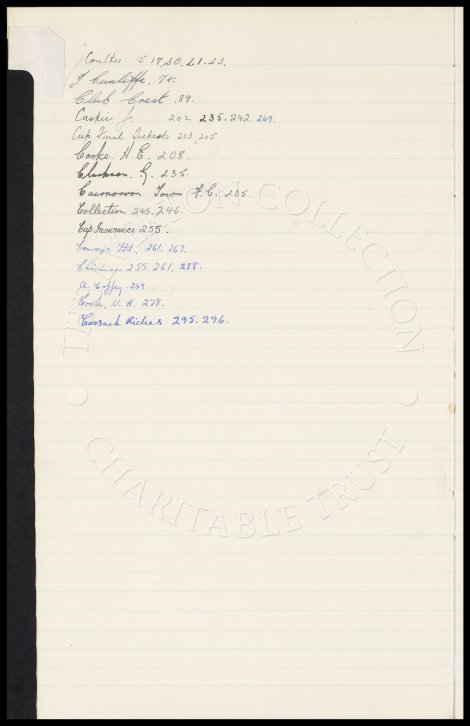 Coulter 15.17.20.21.23.
J Cunliffe. 74.
Club Crest. 89.
Caskie J. 202 235.242. 269.
Cup Final Tickets 203. 205
Cooke. H. E. 208.
Clarkson. G. 235
Caernarvon Town F.C. 235.
Collection 245.246.
Cup Insurance 255.
Conways Ltd. 261. 263.
255. 261. 288.
A. Coffey. 269.
Cooke, W. H. 278.
Cossack Riders 295. 296.
COLLECTION
CHARITABLE TRUST